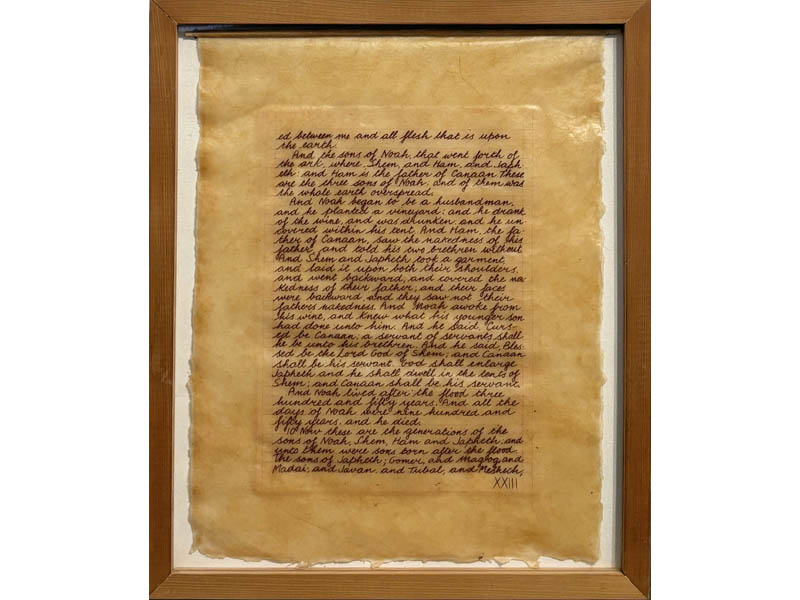 ed between me and all flesh that is upon
the earth.
And the sons of Noah, that went forth of
the ark, where Shem, and Ham, and Japh
eth: and Ham is the father of Canaan These
are the three sons of Noah, and of them was
the whole earth overspread.
And Noah began to be a husbandman,
and he planted a vineyard: and he drank
of the wine, and was drunken, and he un
covered within his tent. And Ham, the fa
ther of Canaan, saw the nakedness of his
father, and told his two brethren without
And Shem and Japheth took a garment
and laid it upon both their shoulders,
and went backward, and covered the na
kedness of their father; and their faces
were backward and they saw not their
fathers nakedness. And Noah awoke from
his wine, and knew what his younger son
had done unto him. And he said, Curs-
ed be Canaan; a servant of servants shall
he be unto his brethren. And he said, Bles
sed be the Lord God of Shem; and Canaan
shall be his servant. God shall enlarge
Japheth and he shall dwell in the tents of
Shem; and Canaan shall be his servant.
And Noah lived after the flood three
hundred and fifty years. And all the
days of Noah were nine hundred and
fifty years. and he died.
10 Now these are the generations of the
sons of Noah, Shem, Ham and Japheth, and
unto them were sons born after the flood.
The sons of Japheth; Gomer, and Magog, and
Madai, and Javan, and Tubal, and Meshech,
XXIII